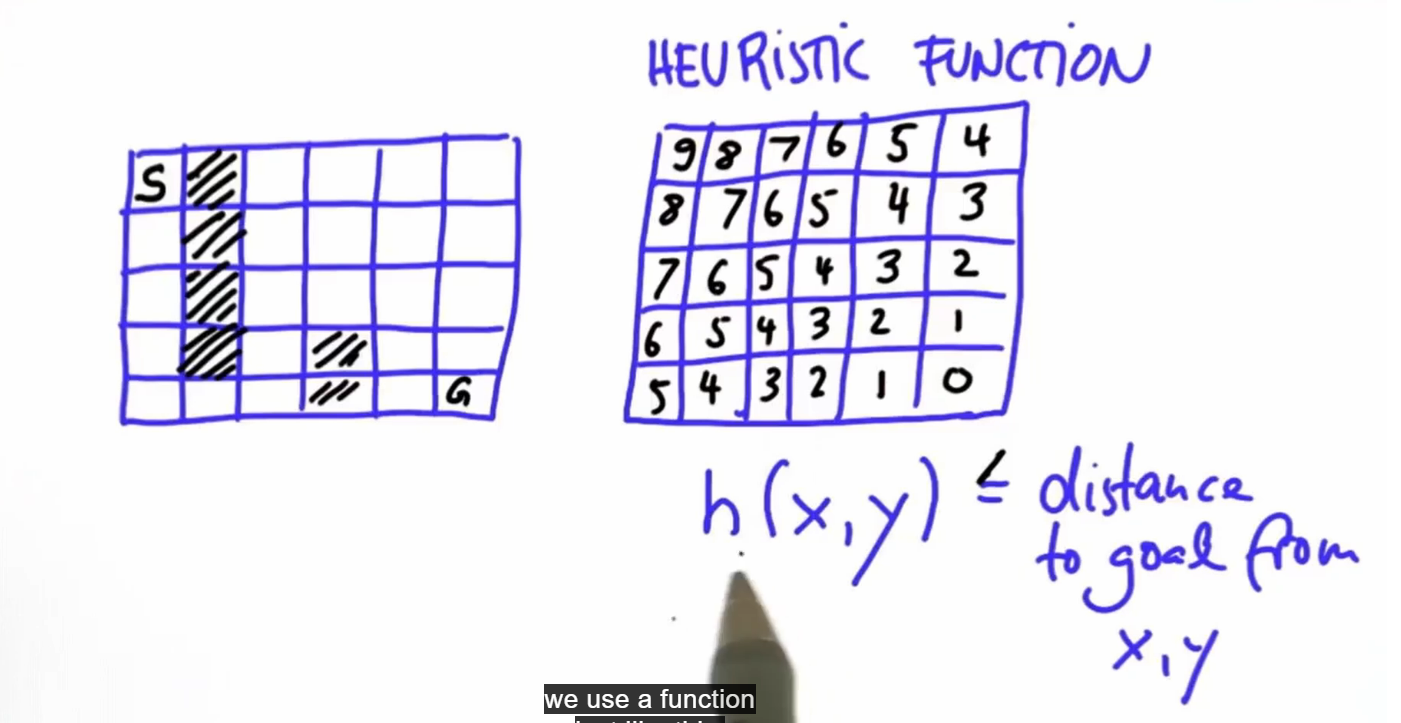 HEURISTIC FUNCTION
S
G
9 8 7 6 5 4
8 7 6 5 4 3
7 6 5 4 3 2
6 5 4 3 2 1
5 4 3 2 1 0
h(x,y) ≤ distance
to goal from
x,y
we use a function